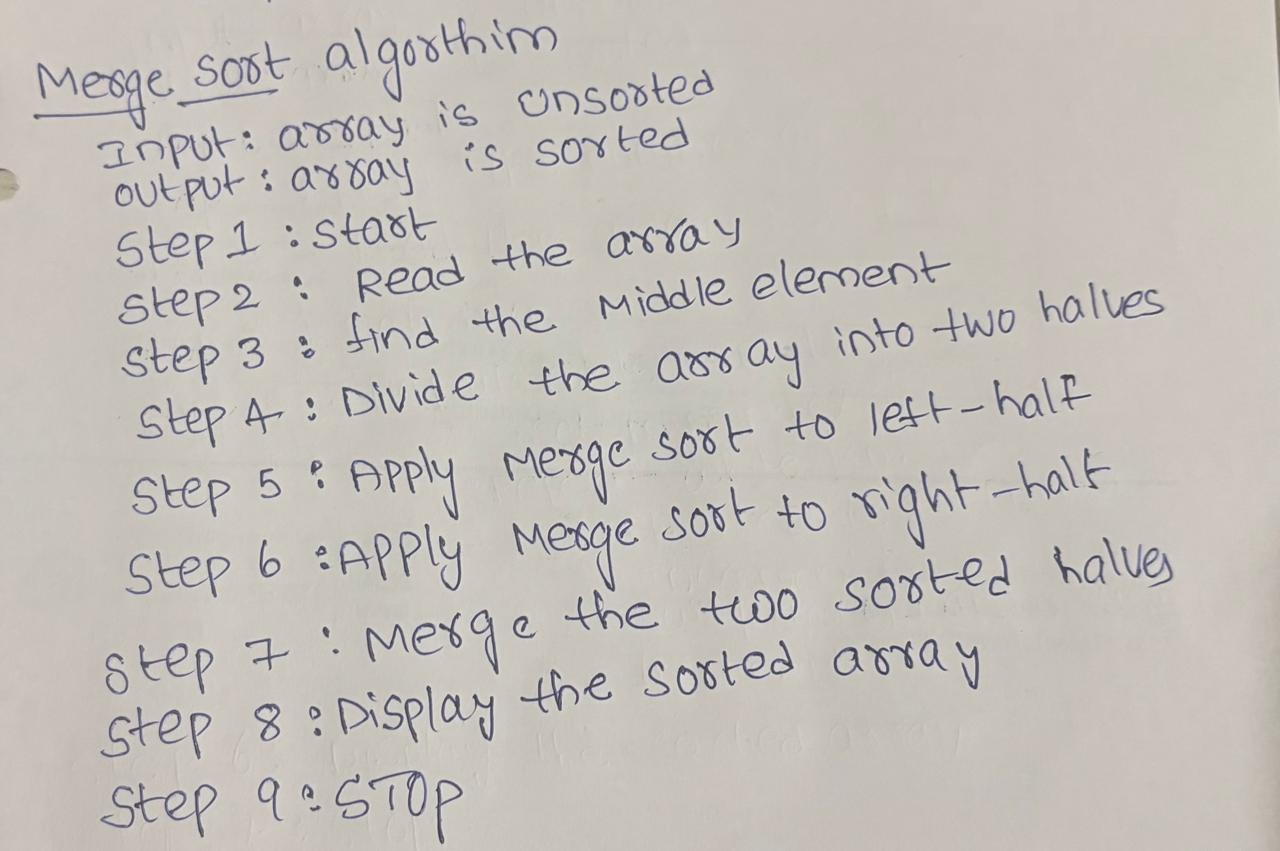 Merge sort algorthim
Input: array is unsorted
output: array is sorted
Step 1: Start
Step 2: Read the array
Step 3: find the Middle element
Step 4: Divide the array into two halves
Step 5: Apply Merge sort to left-half
Step 6: Apply Merge sort to right-half
Step 7: Merge the two sorted halves
Step 8: Display the sorted array
Step 9: STOP